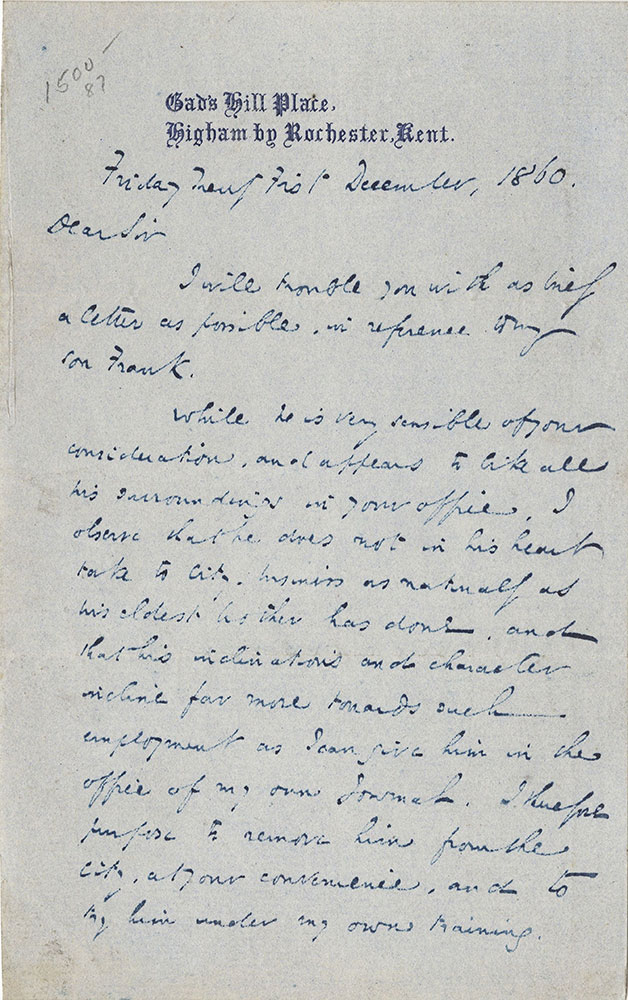 1500
87
Gad's Hill Place,
Higham by Rochester, Kent.
Friday Twenty First December, 1860.
Dear Sir
I will trouble you with as brief
a letter as possible, in reference to my
son Frank.
While he is very sensible of your
consideration, and appears to like all
his surroundings in your office, I
observe that he does not in his heart
take to City business as naturally as
his eldest brother has done, and
that his inclinations and character
incline far more towards such
employment as I can give him in the
office of my own Journal. I therefore
purpose to remove him from the
City, at your convenience, and to
try him under my own training.